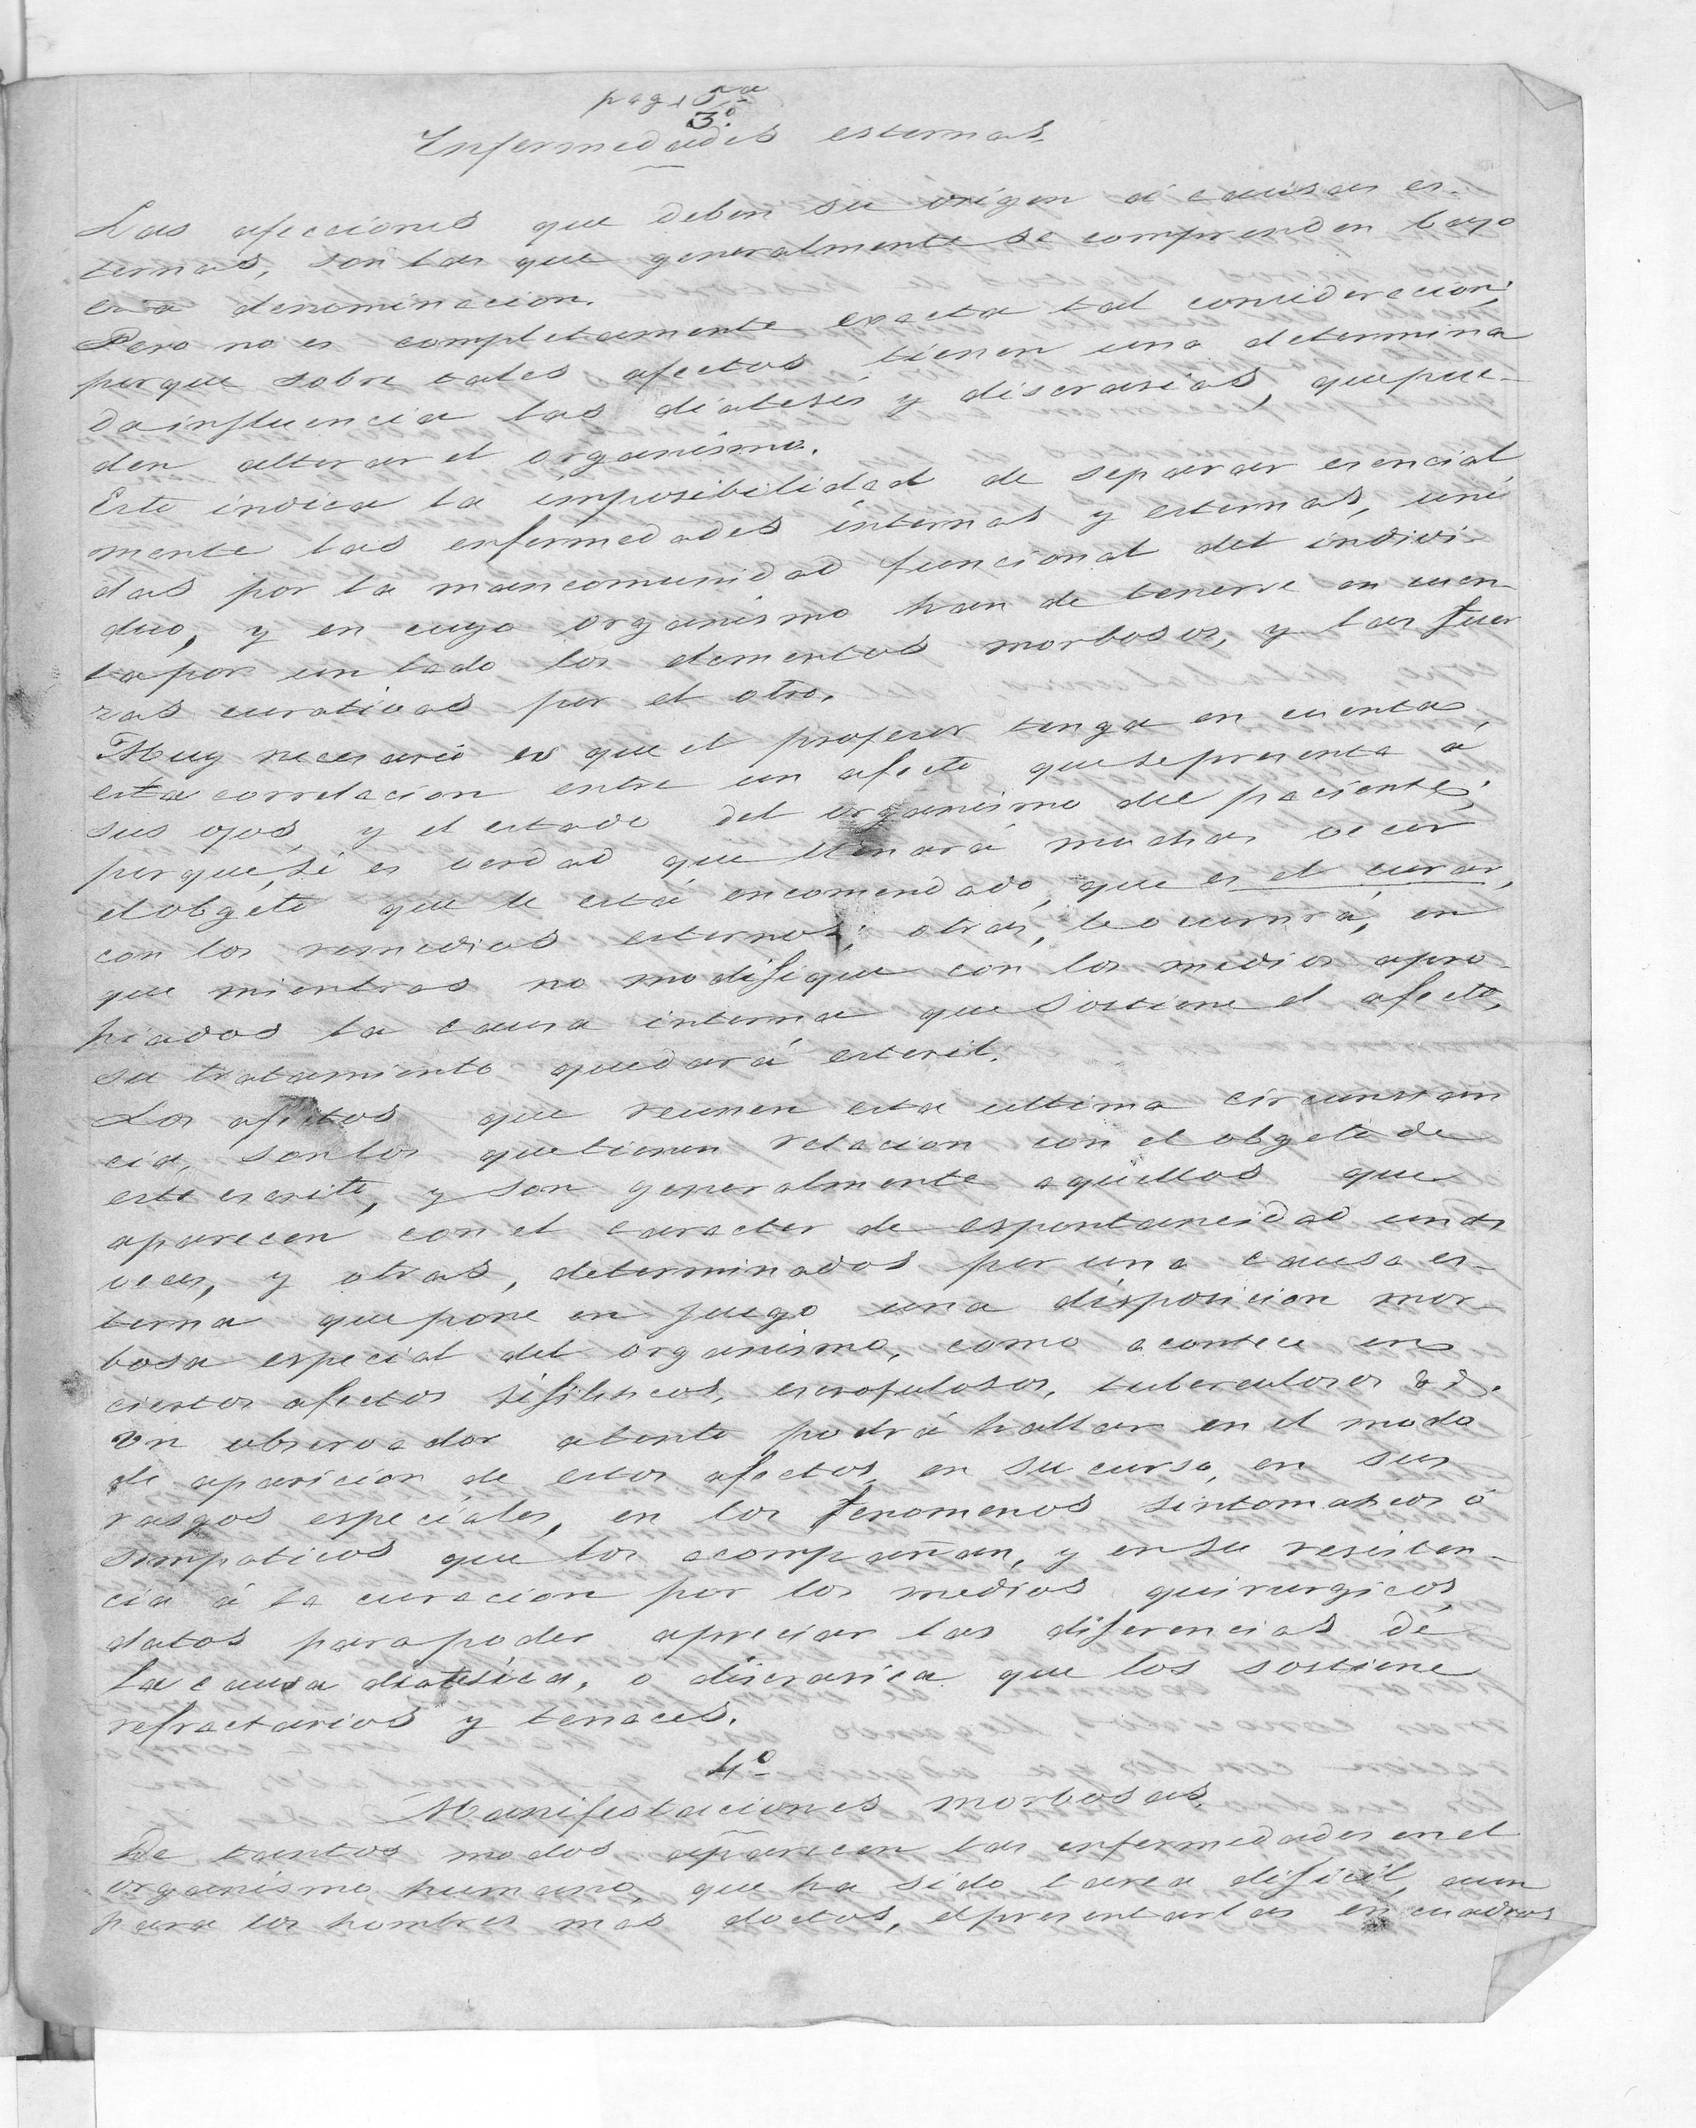 pag. 5ª
3º.
Enfermedades esternas.
Las afecciones que deben su origen á causas es-
ternas, son las que generalmente se comprenden bajo
esta denominacion.
Pero no es completamente exacta tal consideracion;
porque sobre tales afectos tienen una determina
da influencia las diatesis y discrasias, que pue-
den alterar el organismo.
Esto indica la imposibilidad de separar esencial
mente las enfermedades internas y esternas, uni
das por la mancomunidad funcional del indivi-
duo, y en cuyo organismo han de tenerse en cuen-
ta por un lado los elementos morbosos, y las fuer
zas curativas por el otro.
Muy necesario es que el profesor tenga en cuenta
esta correlacion entre un afecto que se presenta á
sus ojos, y el estado del organismo del paciente;
porque, si es verdad que llenará muchas veces
el obgeto que le está encomendado, que es el curar,
con los remedios esternos; otras, le ocurrirá, en
que mientras no modifique con los medios apro-
piados la causa interna que sostiene el afecto,
su tratamiento quedará esteril.
Los afectos que reunen esta ultima circunstan
cia, son los que tienen relacion con el obgeto de
este escrito, y son generalmente aquellos que
aparecen con el caracter de espontaneidad unas
veces, y otras, determinados por una causa es-
terna que pone en juego una disposicion mor-
bosa especial del organismo, como acontece en
ciertos afectos sifiliticos, escrofulosos, tuberculosos &&.
Un observador atento podrá hallar en el modo
de aparicion de estos afectos, en su curso, en sus
rasgos especiales, en los fenomenos sintomaticos ó
simpaticos que los acompañan, y en su resisten-
cia á la curacion por los medios quirurgicos,
datos para poder apreciar las diferencias de
la causa diatesica, o discrasica que los sostiene
refractarios y tenaces.
4º
Manifestaciones morbosas.
De tantos modos aparecen las enfermedades en el
organismo humano, que ha sido tarea dificil, aun
para los hombres mas doctos, el presentarlas en cuadros